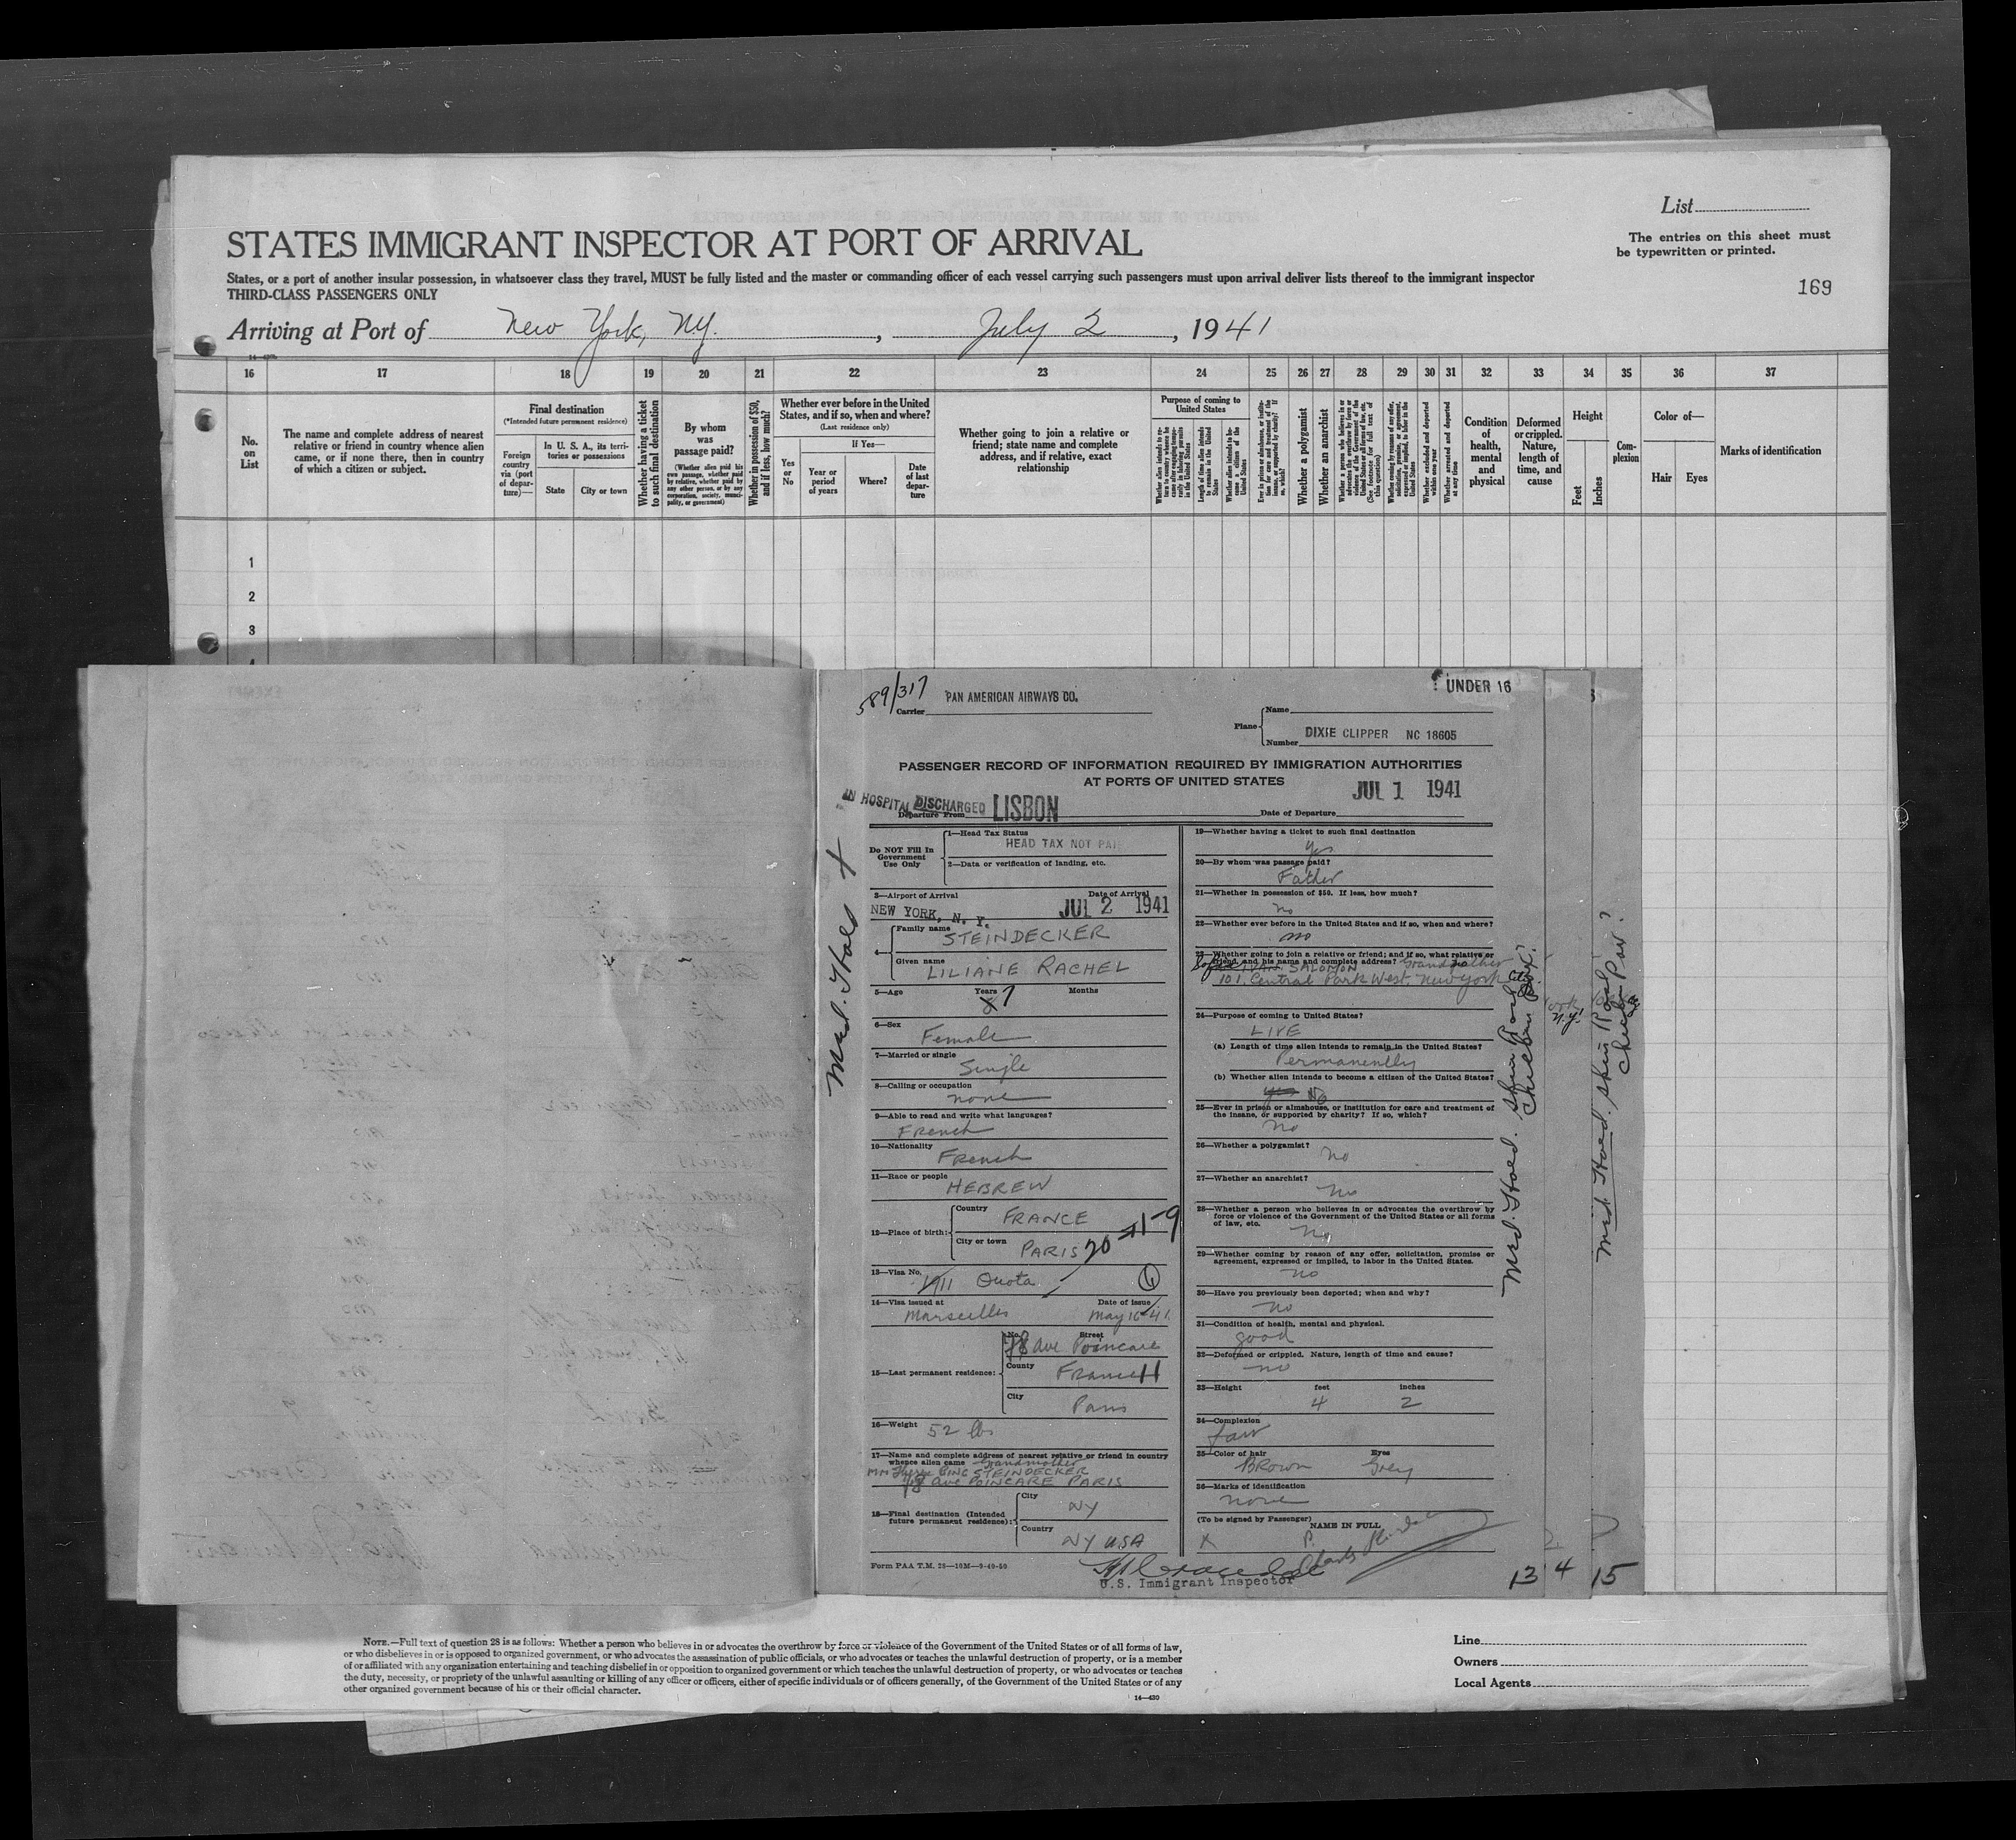 List
The entries on this sheet must
be typewritten or printed.
169
STATES IMMIGRANT INSPECTOR AT PORT OF ARRIVAL
States, or a port of another insular possession, in whatsoever class they travel, MUST be fully listed and the master or commanding officer of each vessel carrying such passengers must upon arrival deliver lists thereof to the immigrant inspector
THIRD-CLASS PASSENGERS ONLY
Arriving at Port of New York, N.Y. , July 2 , 1941
16 17 18 19 20 21 22 23 24 25 26 27 28 29 30 31 32 33 34 35 36 37
No. on List
The name and complete address of nearest
relative or friend in country whence alien
came, or if none there, then in country
of which a citizen or subject.
Final destination
(*Intended future permanent residence)
Foreign country via (port of departure)—
In U. S. A., its territories or possessions
State
City or town
Whether having a ticket to such final destination
By whom was passage paid?
(Whether alien paid his own passage, whether paid by relative, whether paid by any other person, or by any corporation, society, municipality, or government)
Whether in possession of $50, and if less, how much?
Whether ever before in the United
States, and if so, when and where?
(Last residence only)
Yes or No
If Yes—
Year or period of years
Where?
Date of last departure
Whether going to join a relative or
friend; state name and complete
address, and if relative, exact
relationship
Purpose of coming to
United States
Length of time alien intends to remain in the United States
Whether a polygamist
Whether an anarchist
Whether excluded and deported within one year
Whether arrested and deported at any time
Condition of health, mental and physical
Deformed or crippled. Nature, length of time, and cause
Height
Feet
Inches
Complexion
Color of—
Hair
Eyes
Marks of identification
1
2
3
589/317
Carrier PAN AMERICAN AIRWAYS CO.
UNDER 16
Plane
Name
Number DIXIE CLIPPER NC 18605
PASSENGER RECORD OF INFORMATION REQUIRED BY IMMIGRATION AUTHORITIES
AT PORTS OF UNITED STATES
JUL 1 1941
IN HOSPITAL DISCHARGED
Departure From LISBON
Date of Departure
Do NOT Fill In
Government
Use Only
1—Head Tax Status
HEAD TAX NOT PAI
2—Data or verification of landing, etc.
3—Airport of Arrival Date of Arrival
NEW YORK, N. Y. JUL 2 1941
4— Family name STEINDECKER
Given name LILIANE RACHEL
5—Age Years 7 Months
6—Sex Female
7—Married or single Single
8—Calling or occupation none
9—Able to read and write what languages?
French
10—Nationality French
11—Race or people HEBREW
12—Place of birth: Country FRANCE
City or town PARIS 20
13—Visa No. 1911 Quota 6
14—Visa issued at Date of issue
Marseilles May 16-41
15—Last permanent residence:
No. Street
78 ave Poincare
County France
City Paris
16—Weight 52 lbs
17—Name and complete address of nearest relative or friend in country
whence alien came Grandmother
STEINDECKER
78 ave POINCARE PARIS
18—Final destination (Intended
future permanent residence):
City NY
Country NY USA
Form PAA T.M. 28—10M—9-40-50
19—Whether having a ticket to such final destination
Yes
20—By whom was passage paid?
Father
21—Whether in possession of $50. If less, how much?
no
22—Whether ever before in the United States and if so, when and where?
no
23—Whether going to join a relative or friend; and if so, what relative or
friend, and his name and complete address? Grandfather
IVAN SALOMON
101, Central Park West, New York City
24—Purpose of coming to United States?
LIVE
(a) Length of time alien intends to remain in the United States?
Permanently
(b) Whether alien intends to become a citizen of the United States?
yes No
25—Ever in prison or almshouse, or institution for care and treatment of
the insane, or supported by charity? If so, which?
no
26—Whether a polygamist?
no
27—Whether an anarchist?
no
28—Whether a person who believes in or advocates the overthrow by
force or violence of the Government of the United States or all forms
of law, etc.
no
29—Whether coming by reason of any offer, solicitation, promise or
agreement, expressed or implied, to labor in the United States.
no
30—Have you previously been deported; when and why?
no
31—Condition of health, mental and physical.
good
32—Deformed or crippled. Nature, length of time and cause?
no
33—Height feet inches
4 2
34—Complexion
fair
35—Color of hair Eyes
Brown Grey
36—Marks of identification
none
(To be signed by Passenger) NAME IN FULL
X
U.S. Immigrant Inspector
Med. Hold
Med. Hold. Skin Rash
Chicken Pox?
Med. Hold. Skin Rash
Chicken Pox?
N.Y.
13 14 15
NOTE.—Full text of question 28 is as follows: Whether a person who believes in or advocates the overthrow by force or violence of the Government of the United States or of all forms of law,
or who disbelieves in or is opposed to organized government, or who advocates the assassination of public officials, or who advocates or teaches the unlawful destruction of property, or is a member
of or affiliated with any organization entertaining and teaching disbelief in or opposition to organized government or which teaches the unlawful destruction of property, or who advocates or teaches
the duty, necessity, or propriety of the unlawful assaulting or killing of any officer or officers, either of specific individuals or of officers generally, of the Government of the United States or of any
other organized government because of his or their official character.
14—430
Line
Owners
Local Agents